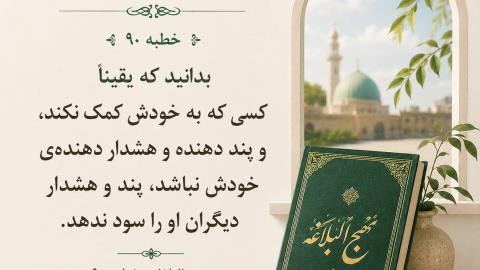 خطبه ۹۰
بدانید که یقیناً
کسی که به خودش کمک نکند،
و پند دهنده و هشدار دهنده‌ی
خودش نباشد، پند و هشدار
دیگران او را سود ندهد.
نهج البلاغه